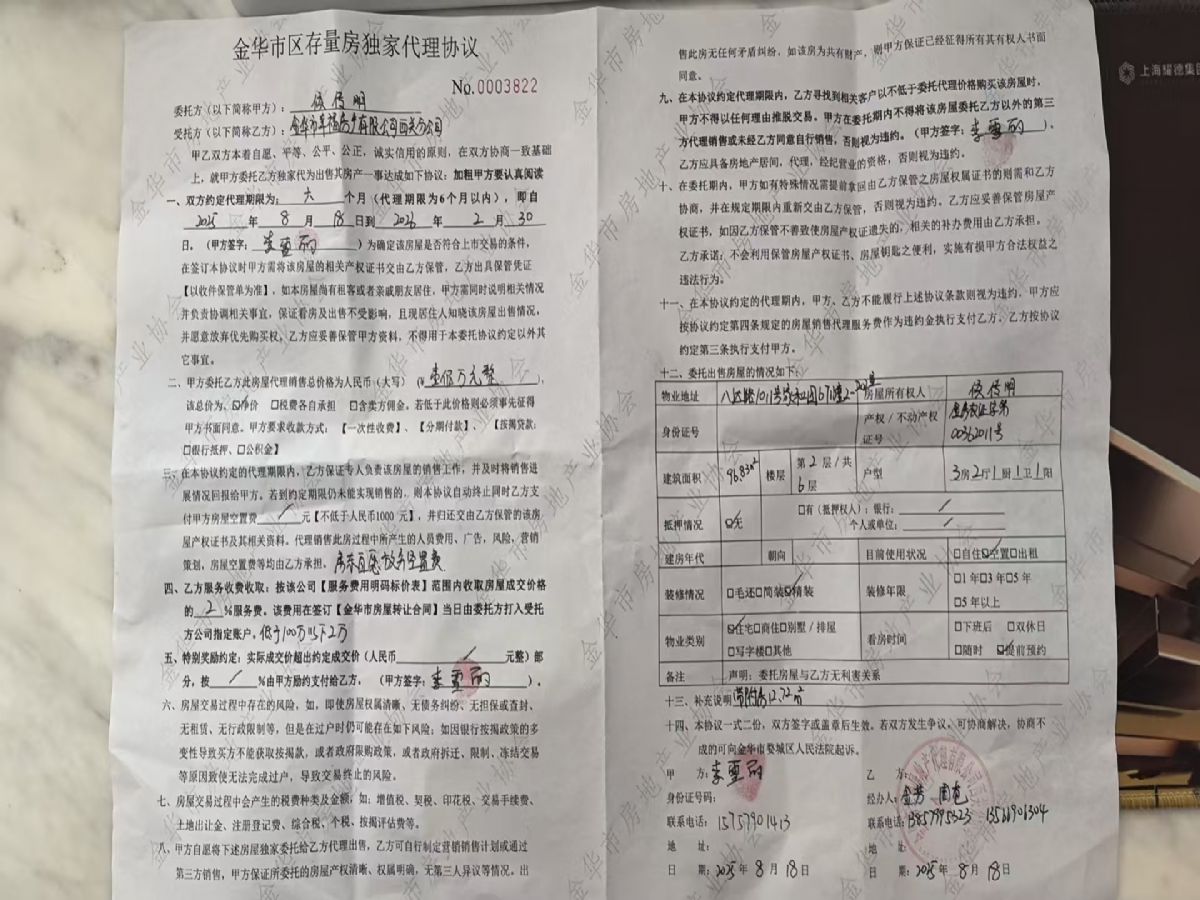 金华市区存量房独家代理协议
No.0003822
委托方（以下简称甲方）：侯传明
受托方（以下简称乙方）：金华市
甲乙双方本着自愿、平等、公平、公正，诚实信用的原则，在双方协商一致基础
上，就甲方委托乙方独家代为出售其房产一事达成如下协议：加粗甲方要认真阅读
一、双方约定代理期限为：六 个月（代理期限为6个月以内），即自
2025 年 8 月 18 日到 2026 年 2 月 30
日。（甲方签字：李雪丽）为确定该房屋是否符合上市交易的条件，
在签订本协议时甲方需将该房屋的相关产权证书交由乙方保管，乙方出具保管凭证
【以收件保管单为准】，如本房屋尚有租客或者亲戚朋友居住，甲方需同时说明相关情况
并负责协调相关事宜，保证看房及出售不受影响，且现居住人知晓该房屋出售情况，
并愿意放弃优先购买权。乙方应妥善保管甲方资料，不得用于本委托协议约定以外其
它事宜。
二、甲方委托乙方此房屋代理销售总价格为人民币（大写）（ 壹佰万元整 ），
该总价为，☑净价 □税费各自承担 □含卖方佣金。若低于此价格则必须事先征得
甲方书面同意。甲方要求收款方式：【一次性收费】、【分期付款】、【按揭贷款：
□银行抵押、□公积金】
三、在本协议约定的代理期限内，乙方保证专人负责该房屋的销售工作，并及时将销售进
展情况回报给甲方。若到约定期限仍未能实现销售的，则本协议自动终止同时乙方支
付甲方房屋空置费 / 元【不低于人民币1000 元】，并归还交由乙方保管的该房
屋产权证书及其相关资料。代理销售此房过程中所产生的人员费用、广告，风险，营销
策划，房屋空置费等均由乙方承担。
四、乙方服务收费收取：按该公司【服务费用明码标价表】范围内收取房屋成交价格
的 2 %服务费。该费用在签订【金华市房屋转让合同】当日由委托方打入受托
方公司指定账户。低于100万以下2万
五、特别奖励约定：实际成交价超出约定成交价（人民币 / 元整）部
分，按 / %由甲方励约支付给乙方，（甲方签字：李雪丽）。
六、房屋交易过程中存在的风险，如，即使房屋权属清晰、无债务纠纷、无担保或查封、
无租赁、无行政限制等，但是在过户时仍可能存在如下风险：如因银行按揭政策的多
变性导致买方不能获取按揭款，或者政府限购政策，或者政府拆迁、限制、冻结交易
等原因致使无法完成过户，导致交易终止的风险。
七、房屋交易过程中会产生的税费种类及金额，如：增值税、契税、印花税、交易手续费、
土地出让金、注册登记费、综合税、个税、按揭评估费等。
八、甲方自愿将下述房屋独家委托给乙方代理出售，乙方可自行制定营销销售计划或通过
第三方销售，甲方保证所委托的房屋产权清晰、权属明确，无第三人异议等情况。出
售此房无任何矛盾纠纷，如该房为共有财产，则甲方保证已经征得所有其有权人书面
同意。
九、在本协议约定代理期限内，乙方寻找到相关客户以不低于委托代理价格购买该房屋时，
甲方不得以任何理由推脱交易。甲方在委托期内不得将该房屋委托乙方以外的第三
方代理销售或未经乙方同意自行销售，否则视为违约。（甲方签字：李雪丽）。
乙方应具备房地产居间，代理，经纪营业的资格，否则视为违约。
十、在委托期内，甲方如有特殊情况需提前拿回由乙方保管之房屋权属证书的则需和乙方
协商，并在规定期限内重新交由乙方保管，否则视为违约。乙方应妥善保管房屋产
权证书，如因乙方保管不善致使房屋产权证遗失的，相关的补办费用由乙方承担。
乙方承诺：不会利用保管房屋产权证书、房屋钥匙之便利，实施有损甲方合法权益之
违法行为。
十一、在本协议约定的代理期内，甲方、乙方不能履行上述协议条款则视为违约，甲方应
按协议约定第四条规定的房屋销售代理服务费作为违约金执行支付乙方。乙方按协议
约定第三条执行支付甲方。
十二、委托出售房屋的情况如下：
物业地址 八达路1011号 房屋所有权人 侯传明
身份证号 产权/不动产权证号 00362011号
建筑面积 96.83m² 楼层 第 2 层/共 6 层 户型 3房2厅1厨1卫1阳
抵押情况 ☑无 □有（抵押权人）：银行： /
个人或单位： /
建房年代 朝向 目前使用状况 □自住☑空置□出租
装修情况 □毛还□简装☑精装 装修年限 □1年□3年□5年
□5年以上
物业类别 ☑住宅□商住□别墅/排屋 □写字楼□其他 看房时间 □下班后 □双休日
□随时 ☑提前预约
备注 声明：委托房屋与乙方无利害关系
十三、补充说明 带附房12.72方
十四、本协议一式二份，双方签字或盖章后生效。若双方发生争议，可协商解决，协商不
成的可向金华市婺城区人民法院起诉。
甲 方：李雪丽
身份证号码：
联系电话：15757901413
地 址：
日 期：2025 年 8 月 18 日
乙 方：
经办人：金芳
联系电话：13857995323
地 址：
日 期：2025 年 8 月 18 日
上海耀德集团